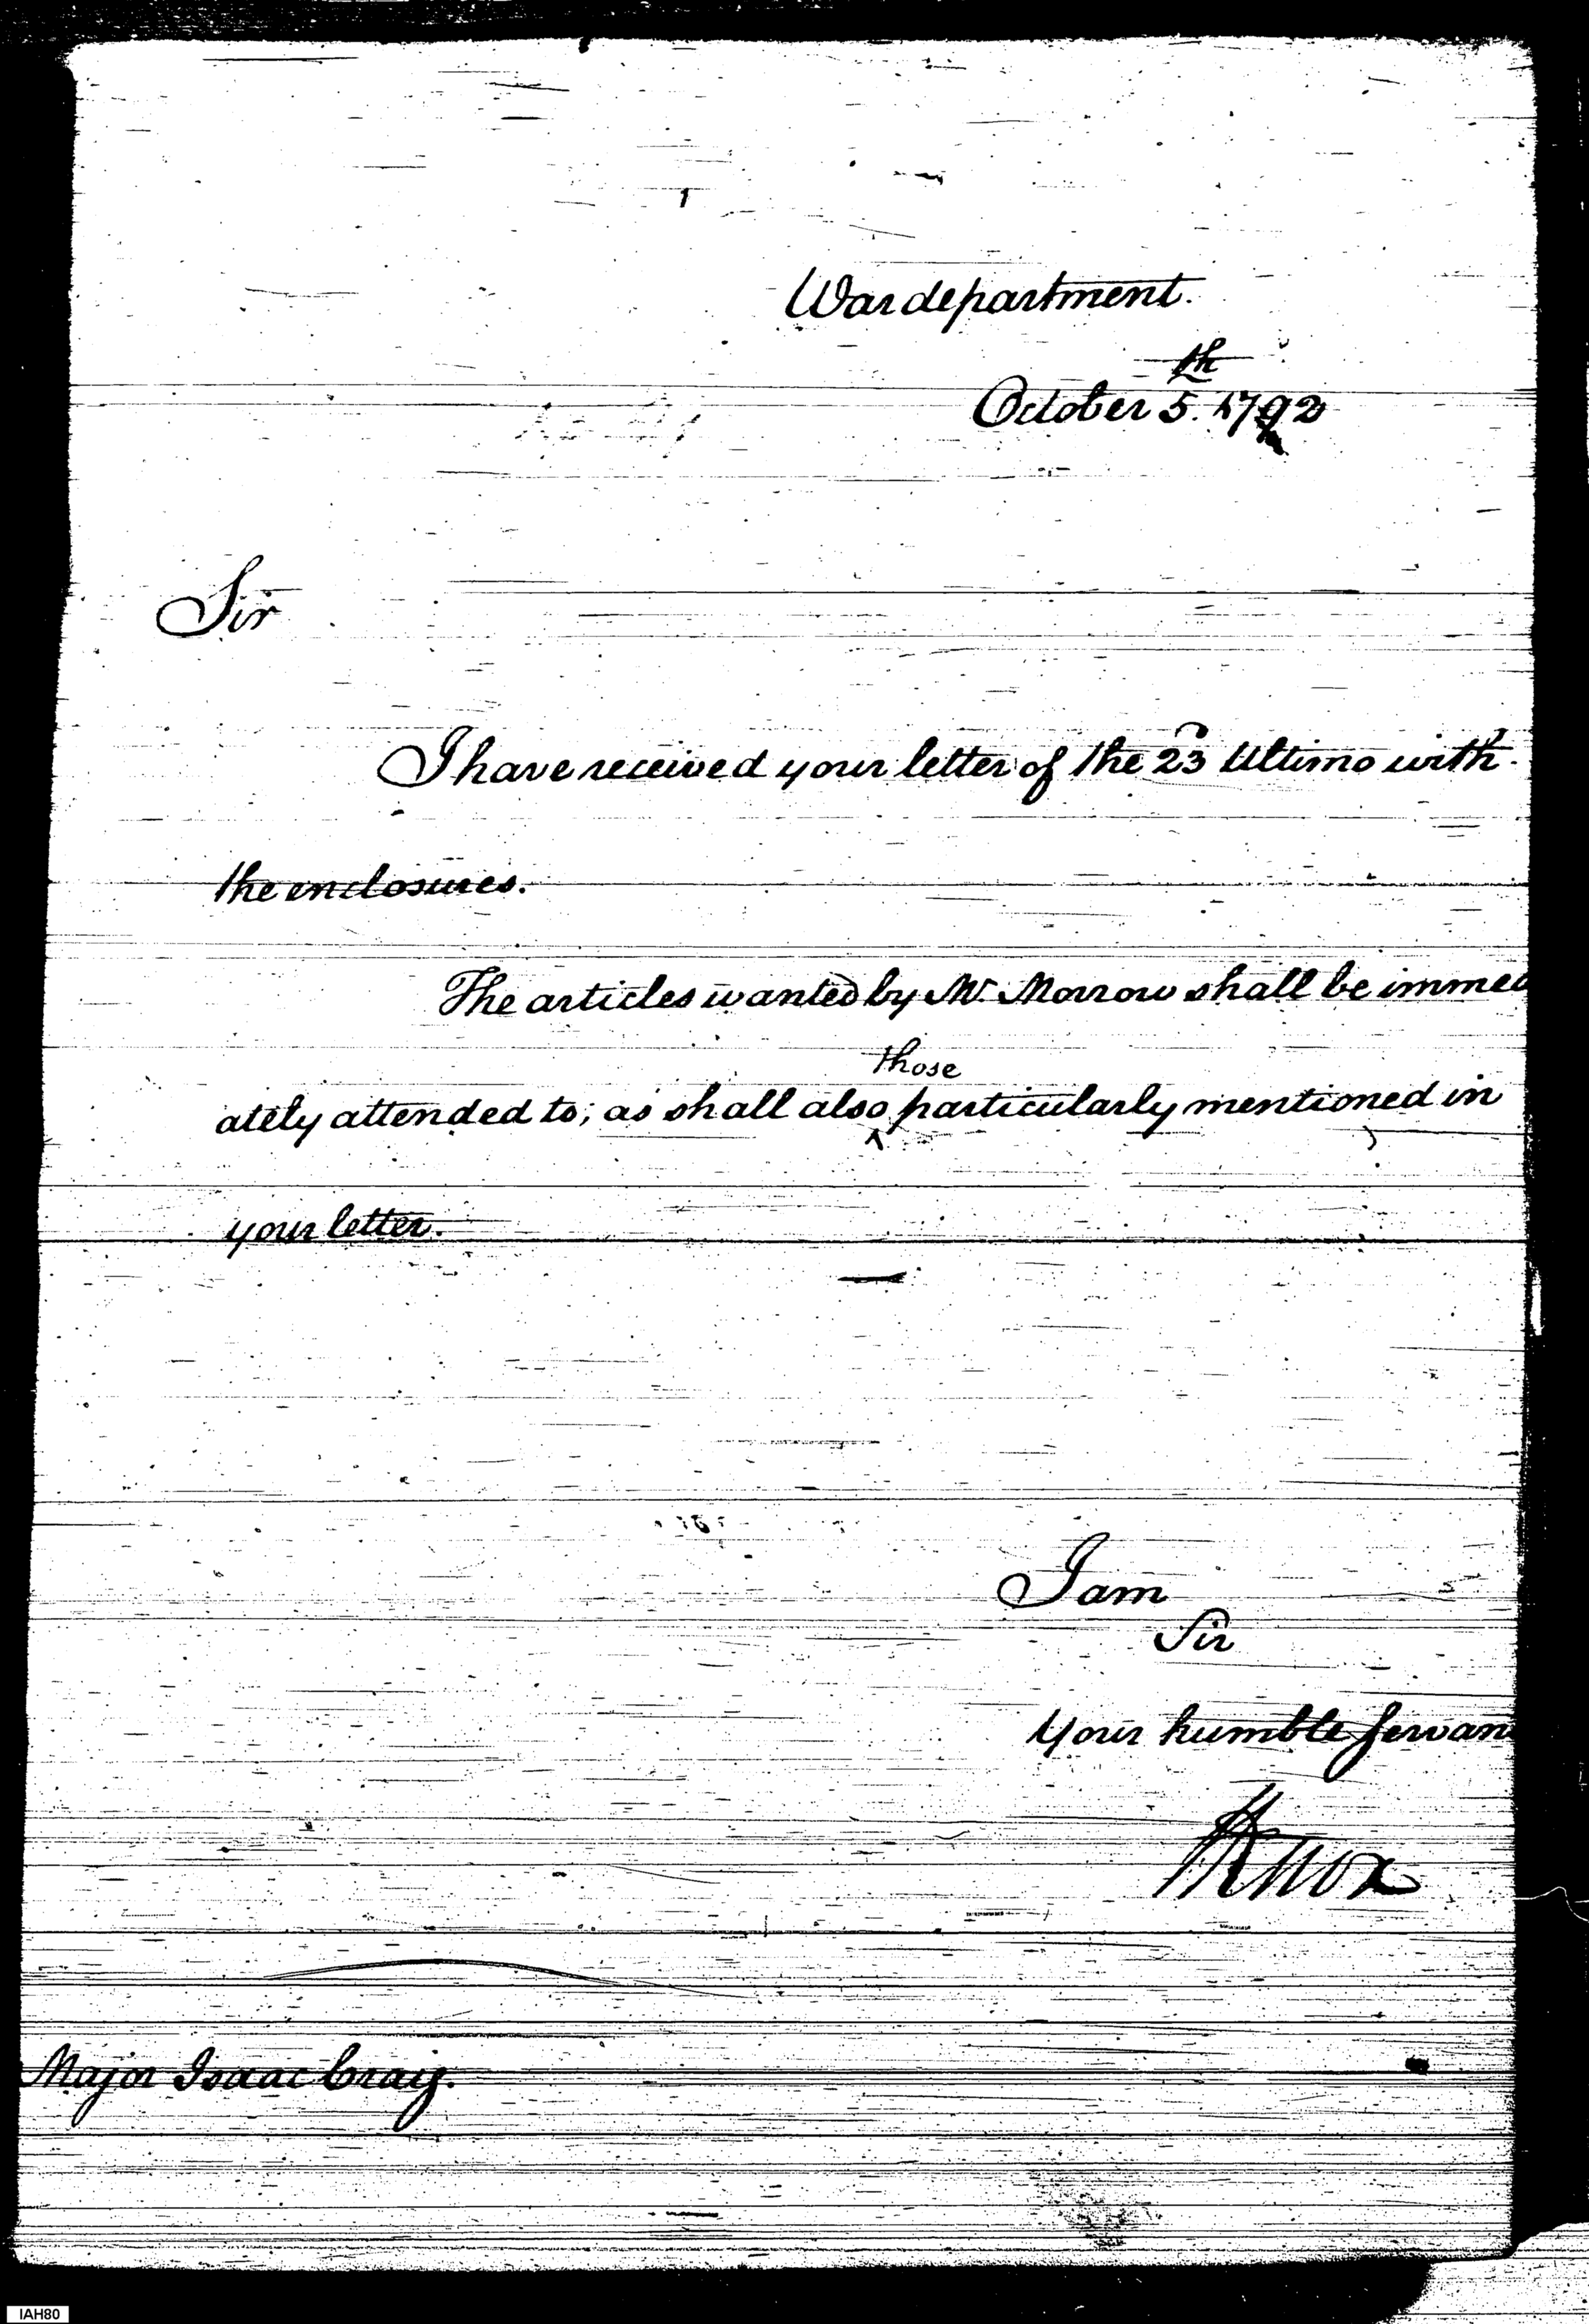 War department.
October 5th. 1792
Sir
I have received your letter of the 23 Ultimo with
the enclosures.
The articles wanted by Mr. Morrow shall be immed
those
ately attended to; as shall also ^ particularly mentioned in
your letter.
I am
Sir
Your humble Servan
HKnox
Major Isaac Craig.
IAH80